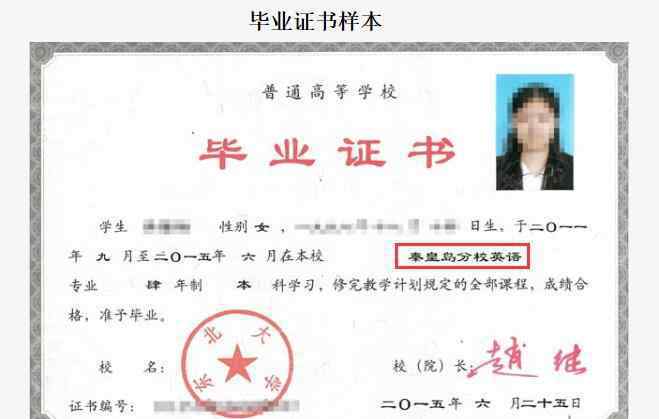 毕业证书样本
普通高等学校
毕业证书
学生 性别 女 , 日生，于二〇一一
年 九 月至二〇一五年 六 月在本校 秦皇岛分校英语
专业 肆 年制 本 科学习，修完教学计划规定的全部课程，成绩合
格，准予毕业。
东北大学
校 名： 校（院）长： 赵继
证书编号： 二〇一五年 六 月二十五日